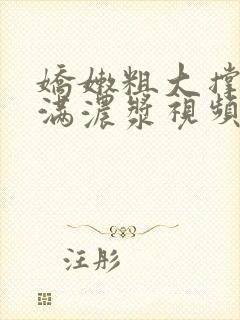 嬌嫩粗大撐
滿濃漿視頻
汪彤